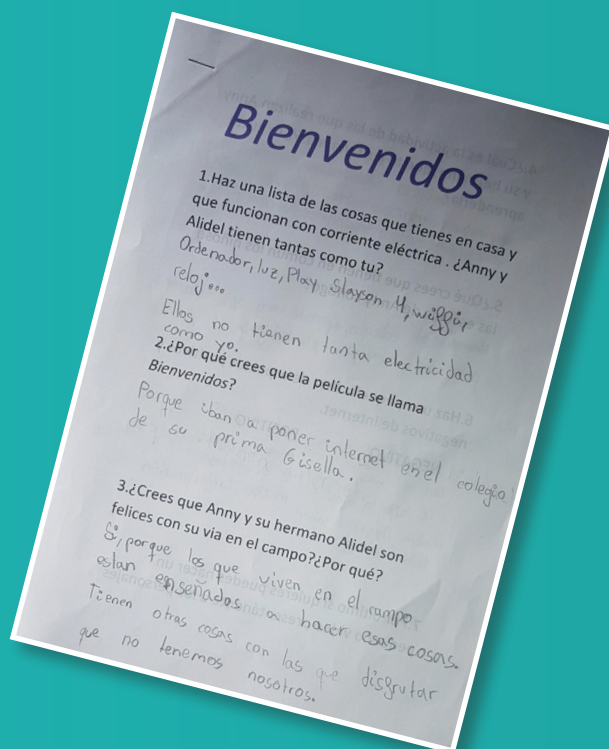 Bienvenidos
1.Haz una lista de las cosas que tienes en casa y
que funcionan con corriente eléctrica . ¿Anny y
Alidel tienen tantas como tu?
Ordenador, luz, Play Stayson 4, wiffi,
reloj...
Ellos no tienen tanta electricidad
como yo.
2.¿Por qué crees que la película se llama
Bienvenidos?
Porque iban a poner internet en el colegio
de su prima Gisella.
3.¿Crees que Anny y su hermano Alidel son
felices con su via en el campo?¿Por qué?
Si, porque los que viven en el campo
estan enseñados a hacer esas cosas.
Tienen otras cosas con las que disfrutar
que no tenemos nosotros.